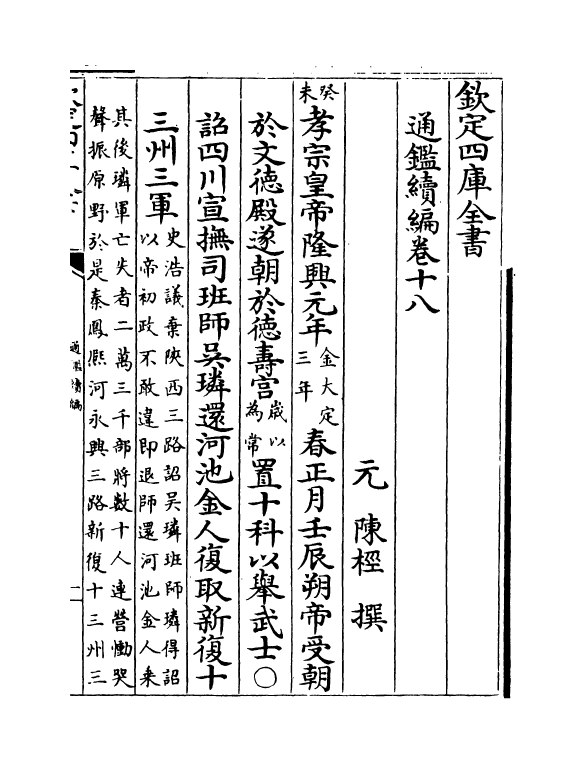 欽定四庫全書
通鑑續編卷十八
元 陳桱 撰
癸未孝宗皇帝隆興元年金大定三年春正月壬辰朔帝受朝
於文德殿遂朝於德壽宮歲以為常置十科以舉武士○
詔四川宣撫司班師吳璘還河池金人復取新復十
三州三軍史浩議棄陝西三路詔吳璘班師璘得詔以帝初政不敢違即退師還河池金人乘
其後璘軍亡失者二萬三千部將數十人連營慟哭聲振原野於是秦鳳熙河永興三路新復十三州三
通鑑續編